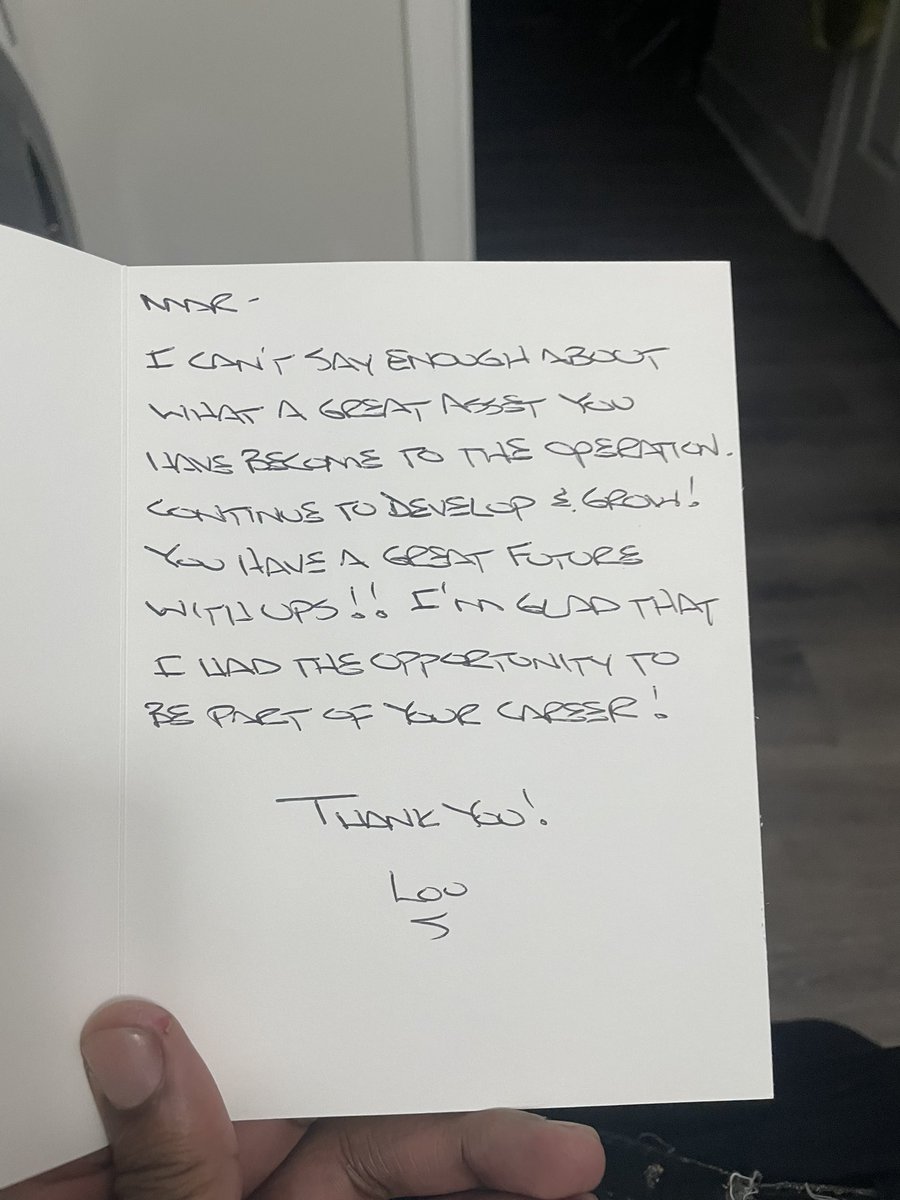 MAR -
I CAN'T SAY ENOUGH ABOUT
WHAT A GREAT ASSET YOU
HAVE BECOME TO THE OPERATION.
CONTINUE TO DEVELOP & GROW!
YOU HAVE A GREAT FUTURE
WITH UPS!! I'M GLAD THAT
I HAD THE OPPORTUNITY TO
BE PART OF YOUR CAREER!
THANK YOU!
LOU